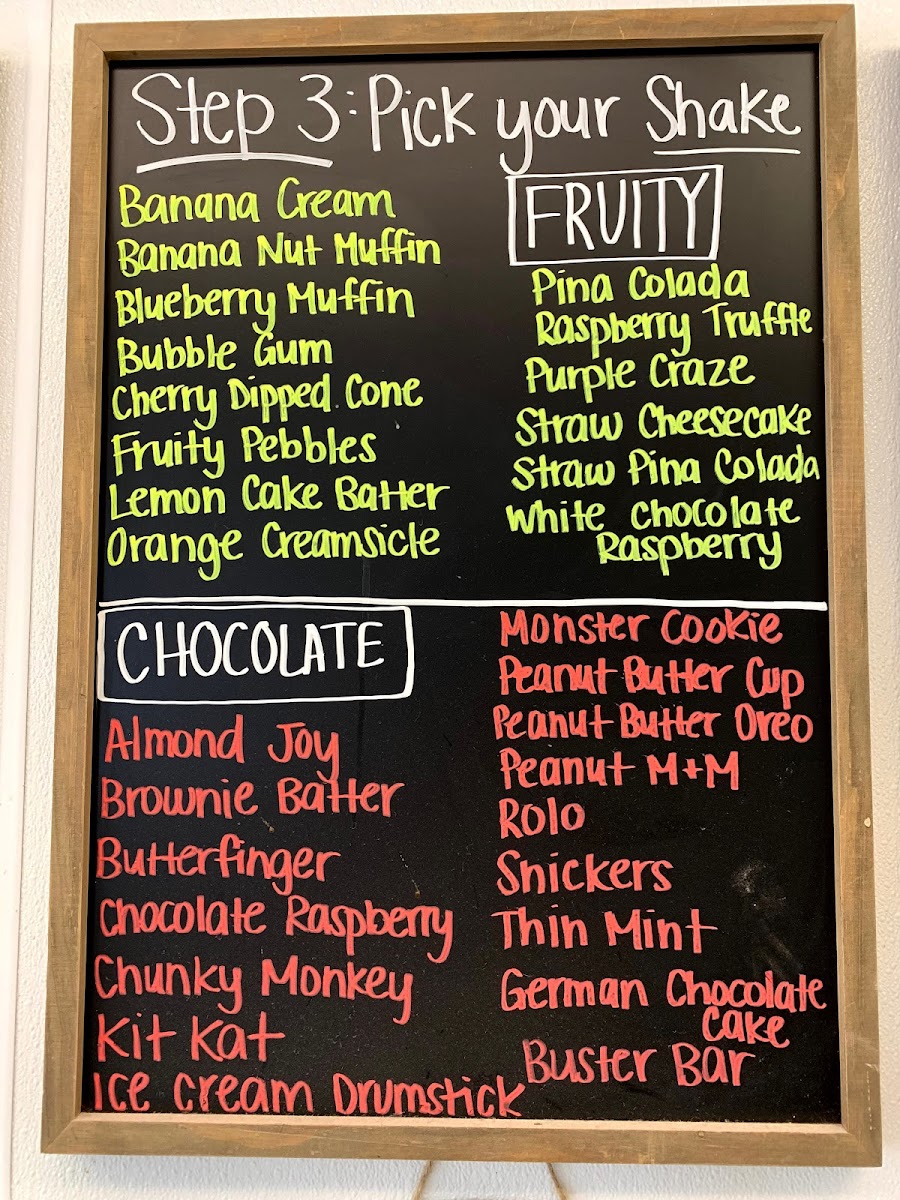 Step 3: Pick your Shake
FRUITY
Banana Cream
Banana Nut Muffin
Blueberry Muffin
Bubble Gum
Cherry Dipped Cone
Fruity Pebbles
Lemon Cake Batter
Orange Creamsicle
Pina Colada
Raspberry Truffle
Purple Craze
Straw Cheesecake
Straw Pina Colada
White Chocolate
Raspberry
CHOCOLATE
Almond Joy
Brownie Batter
Butterfinger
Chocolate Raspberry
Chunky Monkey
Kit Kat
Ice Cream Drumstick
Monster Cookie
Peanut Butter Cup
Peanut Butter Oreo
Peanut M+M
Rolo
Snickers
Thin Mint
German Chocolate
Cake
Buster Bar